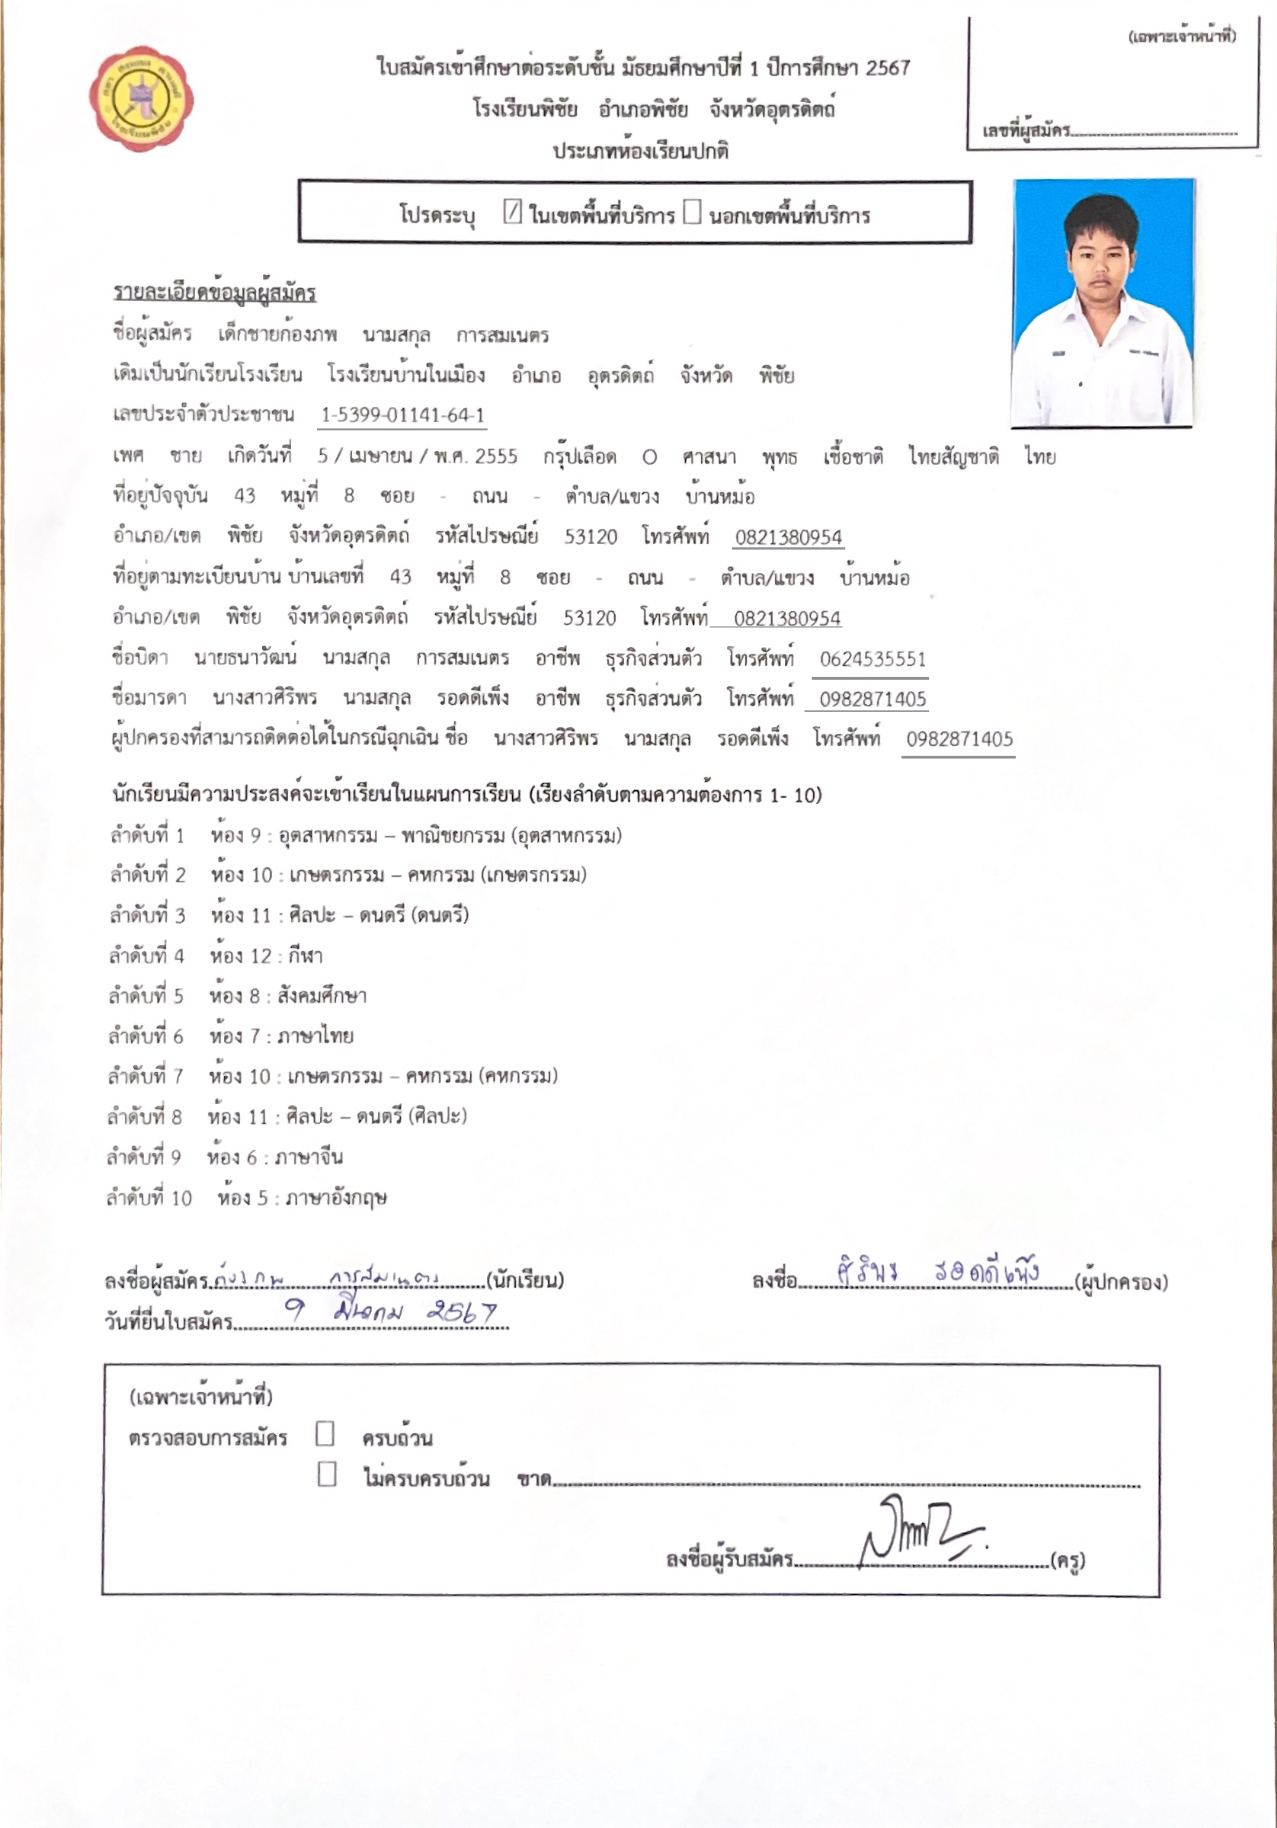 (เฉพาะเจ้าหน้าที่)
ใบสมัครเข้าศึกษาต่อระดับชั้น มัธยมศึกษาปีที่ 1 ปีการศึกษา 2567
โรงเรียนพิชัย อำเภอพิชัย จังหวัดอุตรดิตถ์
เลขที่ผู้สมัคร
ประเภทห้องเรียนปกติ
โรงเรียนพิชัย
โปรดระบุ / ในเขตพื้นที่บริการ นอกเขตพื้นที่บริการ
รายละเอียดข้อมูลผู้สมัคร
ชื่อผู้สมัคร เด็กชายก้องภพ นามสกุล การสมเนตร
เดิมเป็นนักเรียนโรงเรียน โรงเรียนบ้านในเมือง อำเภอ อุตรดิตถ์ จังหวัด พิชัย
เลขประจำตัวประชาชน 1-5399-01141-64-1
เพศ ชาย เกิดวันที่ 5 / เมษายน / พ.ศ. 2555 กรุ๊ปเลือด O ศาสนา พุทธ เชื้อชาติ ไทยสัญชาติ ไทย
ที่อยู่ปัจจุบัน 43 หมู่ที่ 8 ซอย - ถนน - ตำบล/แขวง บ้านหม้อ
อำเภอ/เขต พิชัย จังหวัดอุตรดิตถ์ รหัสไปรษณีย์ 53120 โทรศัพท์ 0821380954
ที่อยู่ตามทะเบียนบ้าน บ้านเลขที่ 43 หมู่ที่ 8 ซอย - ถนน - ตำบล/แขวง บ้านหม้อ
อำเภอ/เขต พิชัย จังหวัดอุตรดิตถ์ รหัสไปรษณีย์ 53120 โทรศัพท์ 0821380954
ชื่อบิดา นายธนาวัฒน์ นามสกุล การสมเนตร อาชีพ ธุรกิจส่วนตัว โทรศัพท์ 0624535551
ชื่อมารดา นางสาวศิริพร นามสกุล รอดดีเพ็ง อาชีพ ธุรกิจส่วนตัว โทรศัพท์ 0982871405
ผู้ปกครองที่สามารถติดต่อได้ในกรณีฉุกเฉิน ชื่อ นางสาวศิริพร นามสกุล รอดดีเพ็ง โทรศัพท์ 0982871405
นักเรียนมีความประสงค์จะเข้าเรียนในแผนการเรียน (เรียงลำดับตามความต้องการ 1- 10)
ลำดับที่ 1 ห้อง 9 : อุตสาหกรรม – พาณิชยกรรม (อุตสาหกรรม)
ลำดับที่ 2 ห้อง 10 : เกษตรกรรม – คหกรรม (เกษตรกรรม)
ลำดับที่ 3 ห้อง 11 : ศิลปะ – ดนตรี (ดนตรี)
ลำดับที่ 4 ห้อง 12 : กีฬา
ลำดับที่ 5 ห้อง 8 : สังคมศึกษา
ลำดับที่ 6 ห้อง 7 : ภาษาไทย
ลำดับที่ 7 ห้อง 10 : เกษตรกรรม – คหกรรม (คหกรรม)
ลำดับที่ 8 ห้อง 11 : ศิลปะ – ดนตรี (ศิลปะ)
ลำดับที่ 9 ห้อง 6 : ภาษาจีน
ลำดับที่ 10 ห้อง 5 : ภาษาอังกฤษ
ลงชื่อผู้สมัคร ก้องภพ การสมเนตร (นักเรียน) ลงชื่อ ศิริพร รอดดีเพ็ง (ผู้ปกครอง)
วันที่ยื่นใบสมัคร 9 มีนาคม 2567
(เฉพาะเจ้าหน้าที่)
ตรวจสอบการสมัคร ครบถ้วน
ไม่ครบครบถ้วน ขาด
ลงชื่อผู้รับสมัคร (ครู)